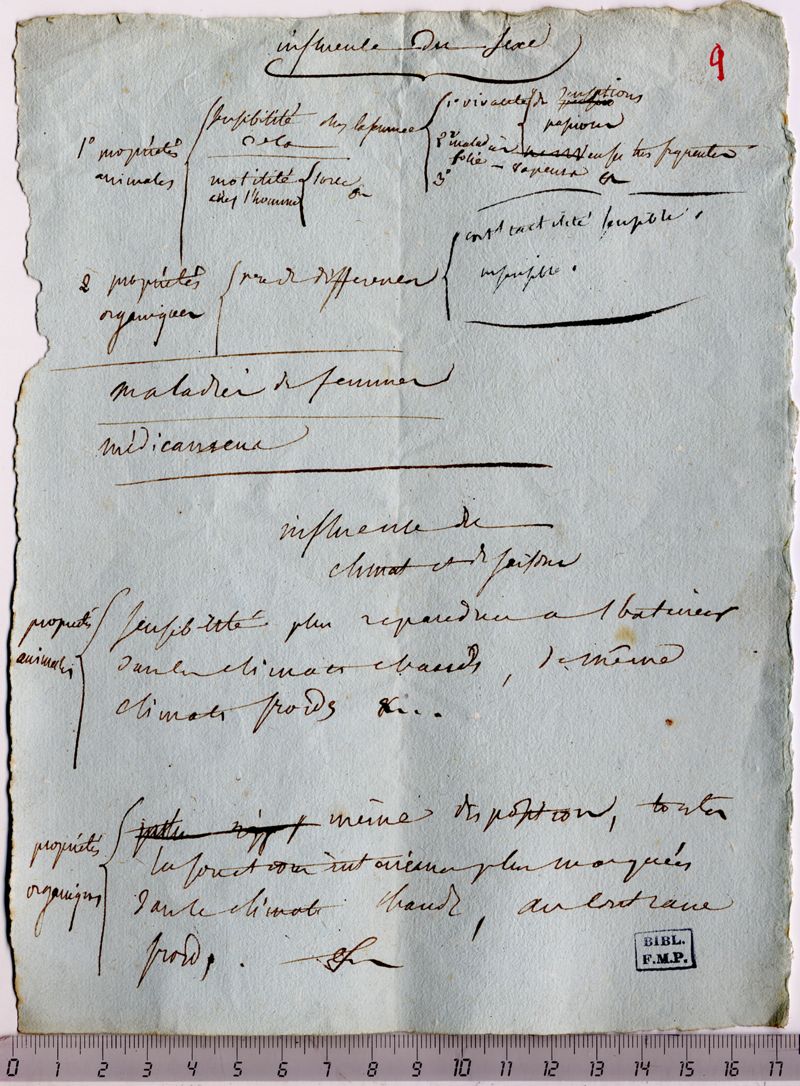 influence du sexe
9
1° propriétés
animales
sensibilité chez la femme
motilité
chez l'homme
force
&c
1° vivacité de sensations
passions
2° maladies
folie
très fréquentes
3°
&c
2 propriétés
organiques
peu de différences
contractilité sensible.
insensible.
maladies de femmes
médicamens
influence du
climat et de saisons
propriétés
animales
sensibilité plus repandue a l'extérieur
dans les climats chauds, de même
climats froids &c..
propriétés
organiques
même disposition, toutes
les fonctions intérieures plus marquées
dans le climats chauds, au contraire
froids. &c
BIBL.
F.M.P.
0 1 2 3 4 5 6 7 8 9 10 11 12 13 14 15 16 17